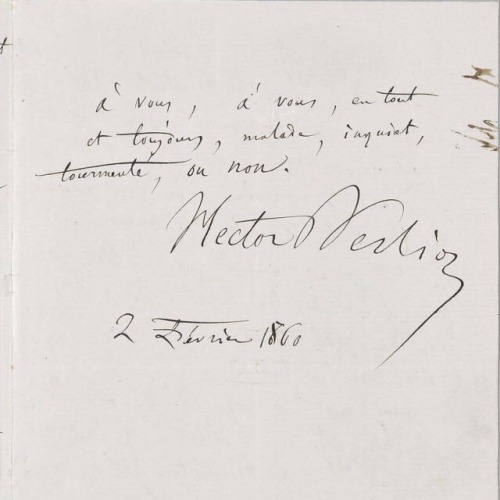 à vous, à vous, en tout
et toujours, malade, inquiet,
tourmenté, ou non.
Hector Berlioz
2 Février 1860